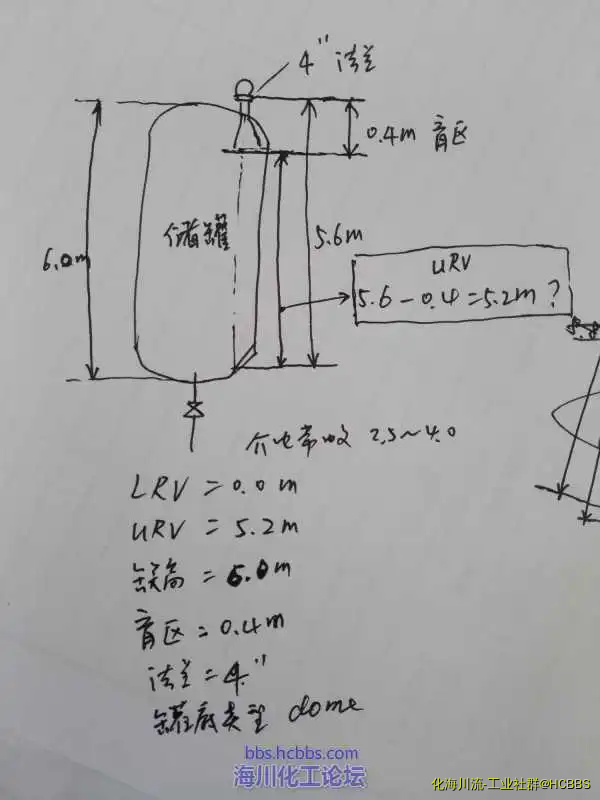 4" 法兰
0.4m 盲区
储罐
5.6m
6.0m
URV
5.6-0.4=5.2m?
介电常数 2.5~4.0
LRV = 0.0 m
URV = 5.2m
罐高 = 6.0m
盲区 = 0.4m
法兰 = 4"
罐底类型 dome
bbs.hcbbs.com
海川化工论坛
化海川流-工业社群@HCBBS